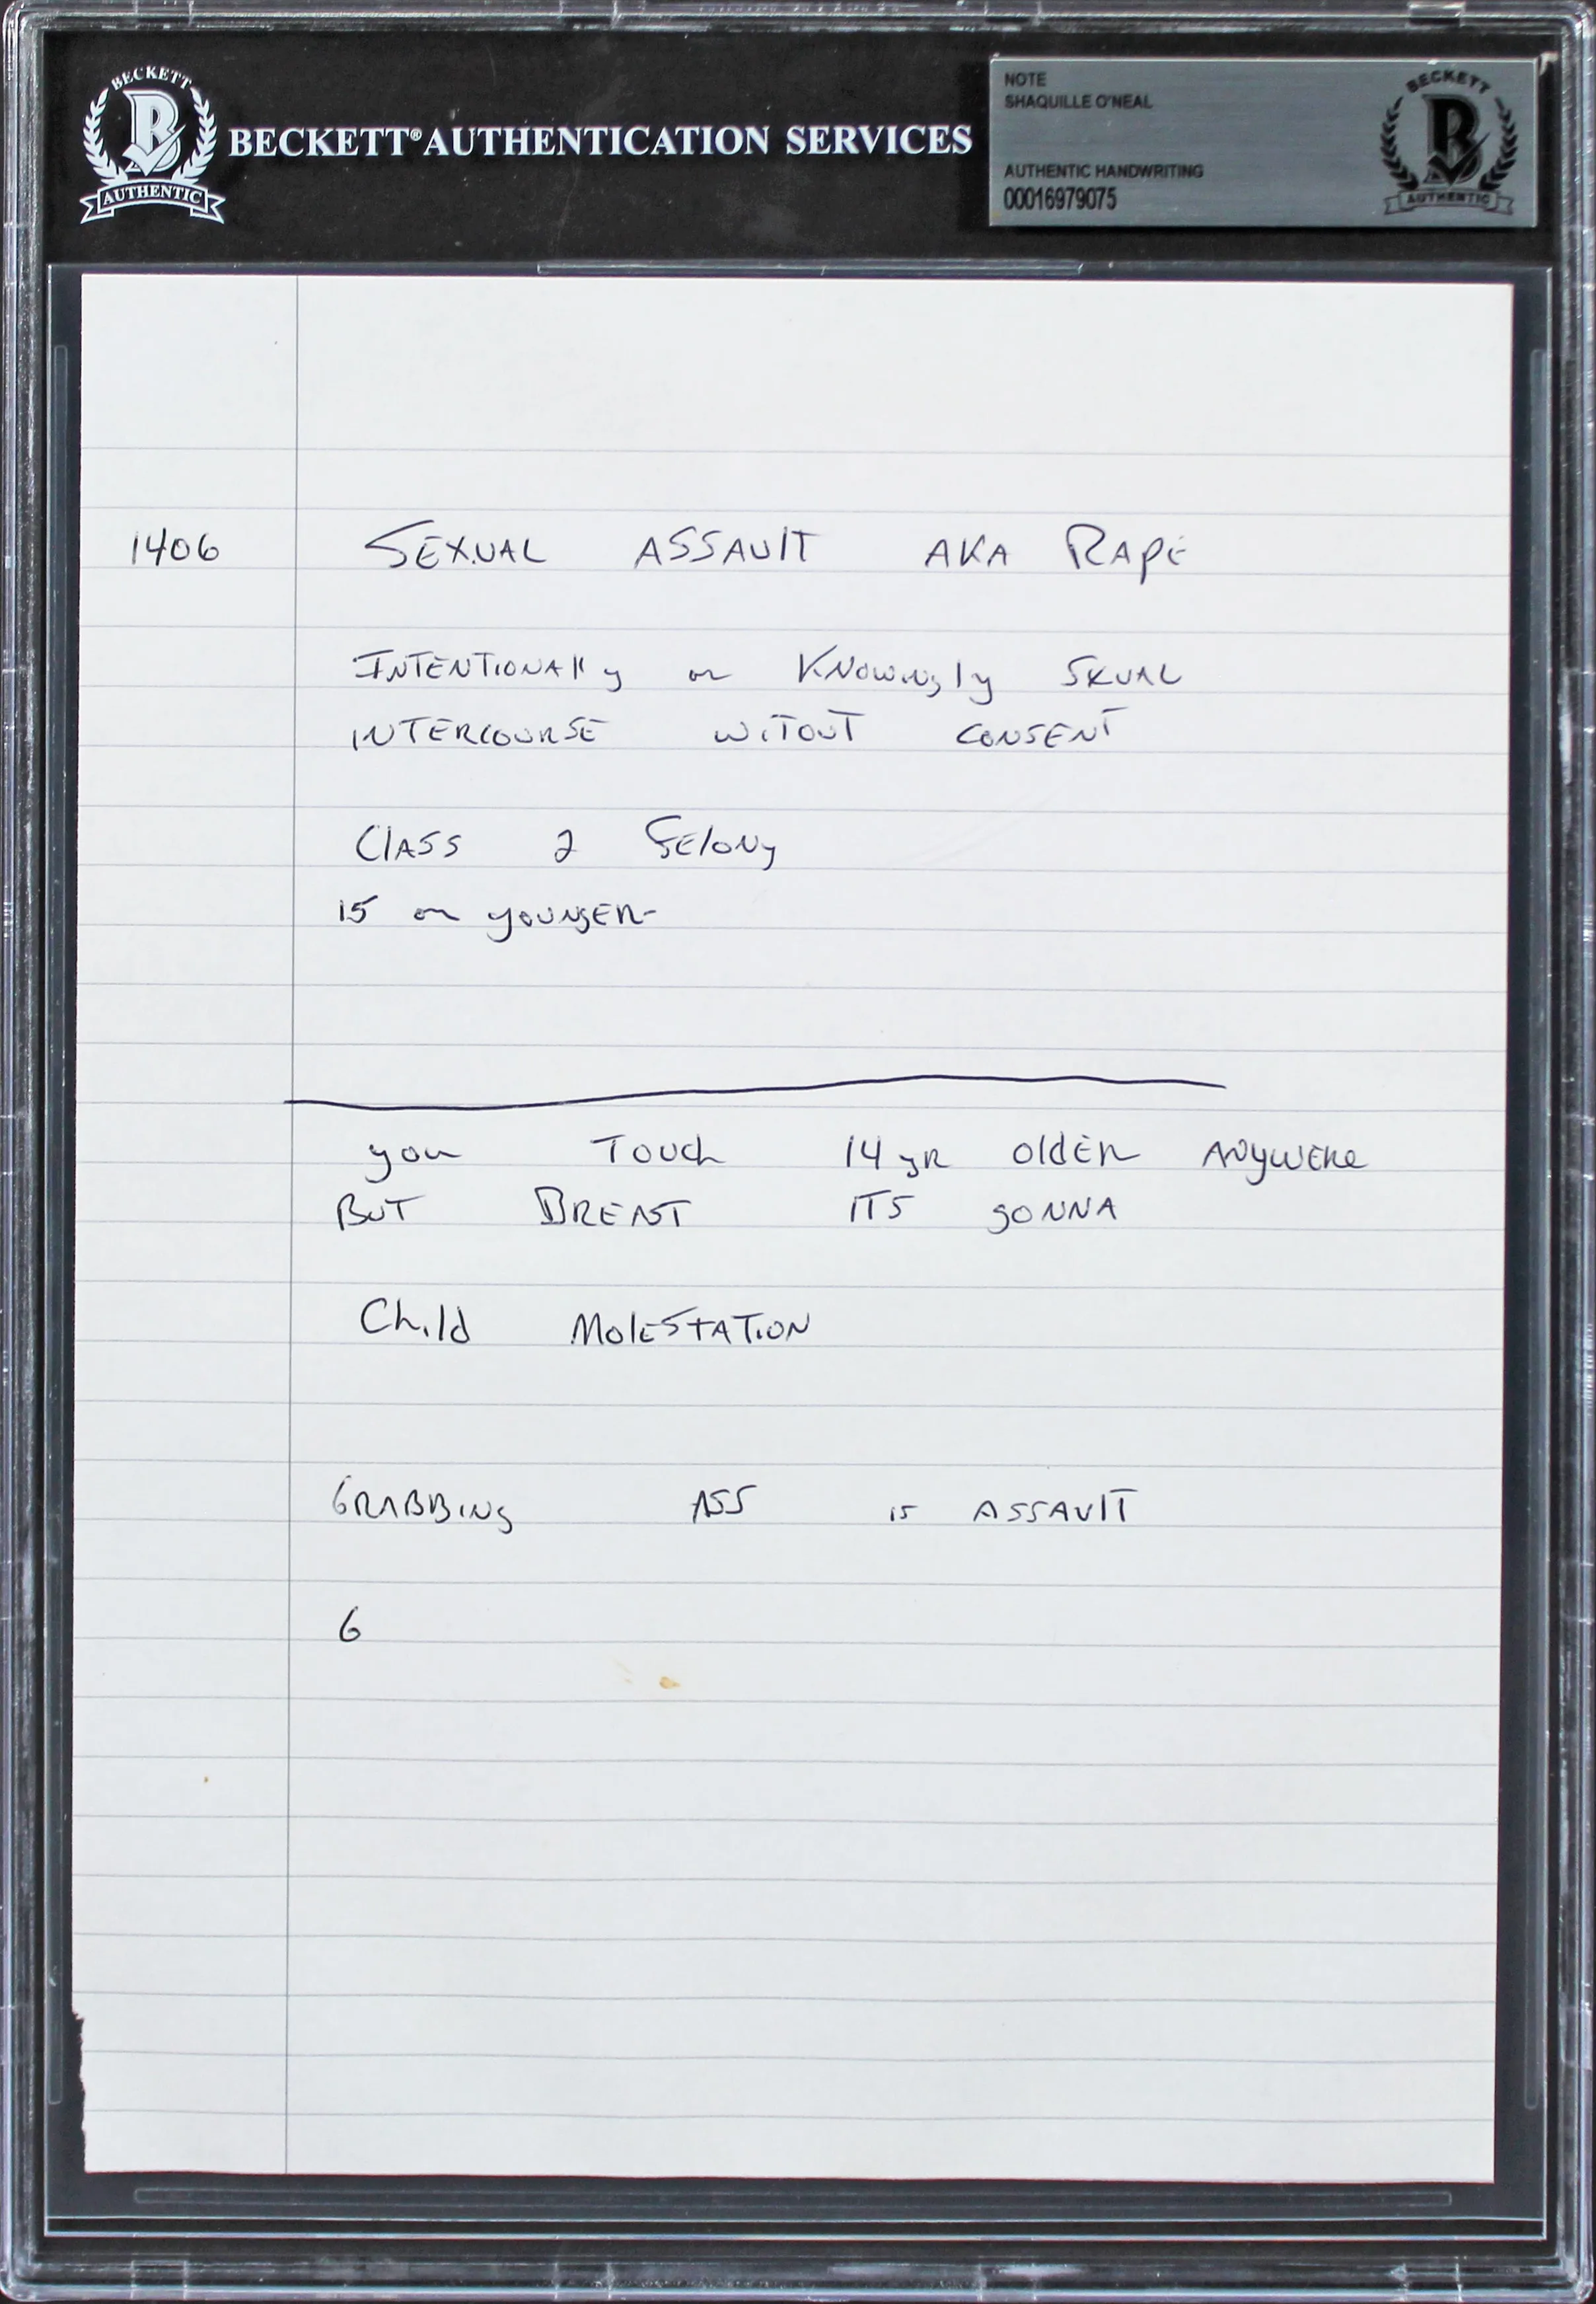 BECKETT
B
AUTHENTIC
BECKETT® AUTHENTICATION SERVICES
NOTE
SHAQUILLE O'NEAL
AUTHENTIC HANDWRITING
00016979075
BECKETT
B
AUTHENTIC
1406 SEXUAL ASSAULT AKA RAPE
INTENTIONALLY or KNOWINGLY SXUAL
INTERCOURSE WITOUT CONSENT
CLASS 2 FELONY
15 or YOUNGER
you TOUCH 14 yR OLDER ANYWERE
BUT BREAST ITS GONNA
Child MOLESTATION
GRABBING ASS is ASSAULT
6